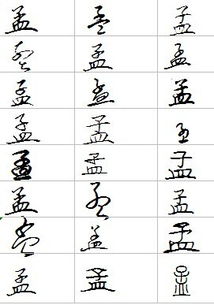 孟 孟 孟
孟 孟 孟
孟 孟 孟
孟 孟 孟
孟 孟 孟
孟 孟 孟
孟 孟 孟
孟 孟 孟